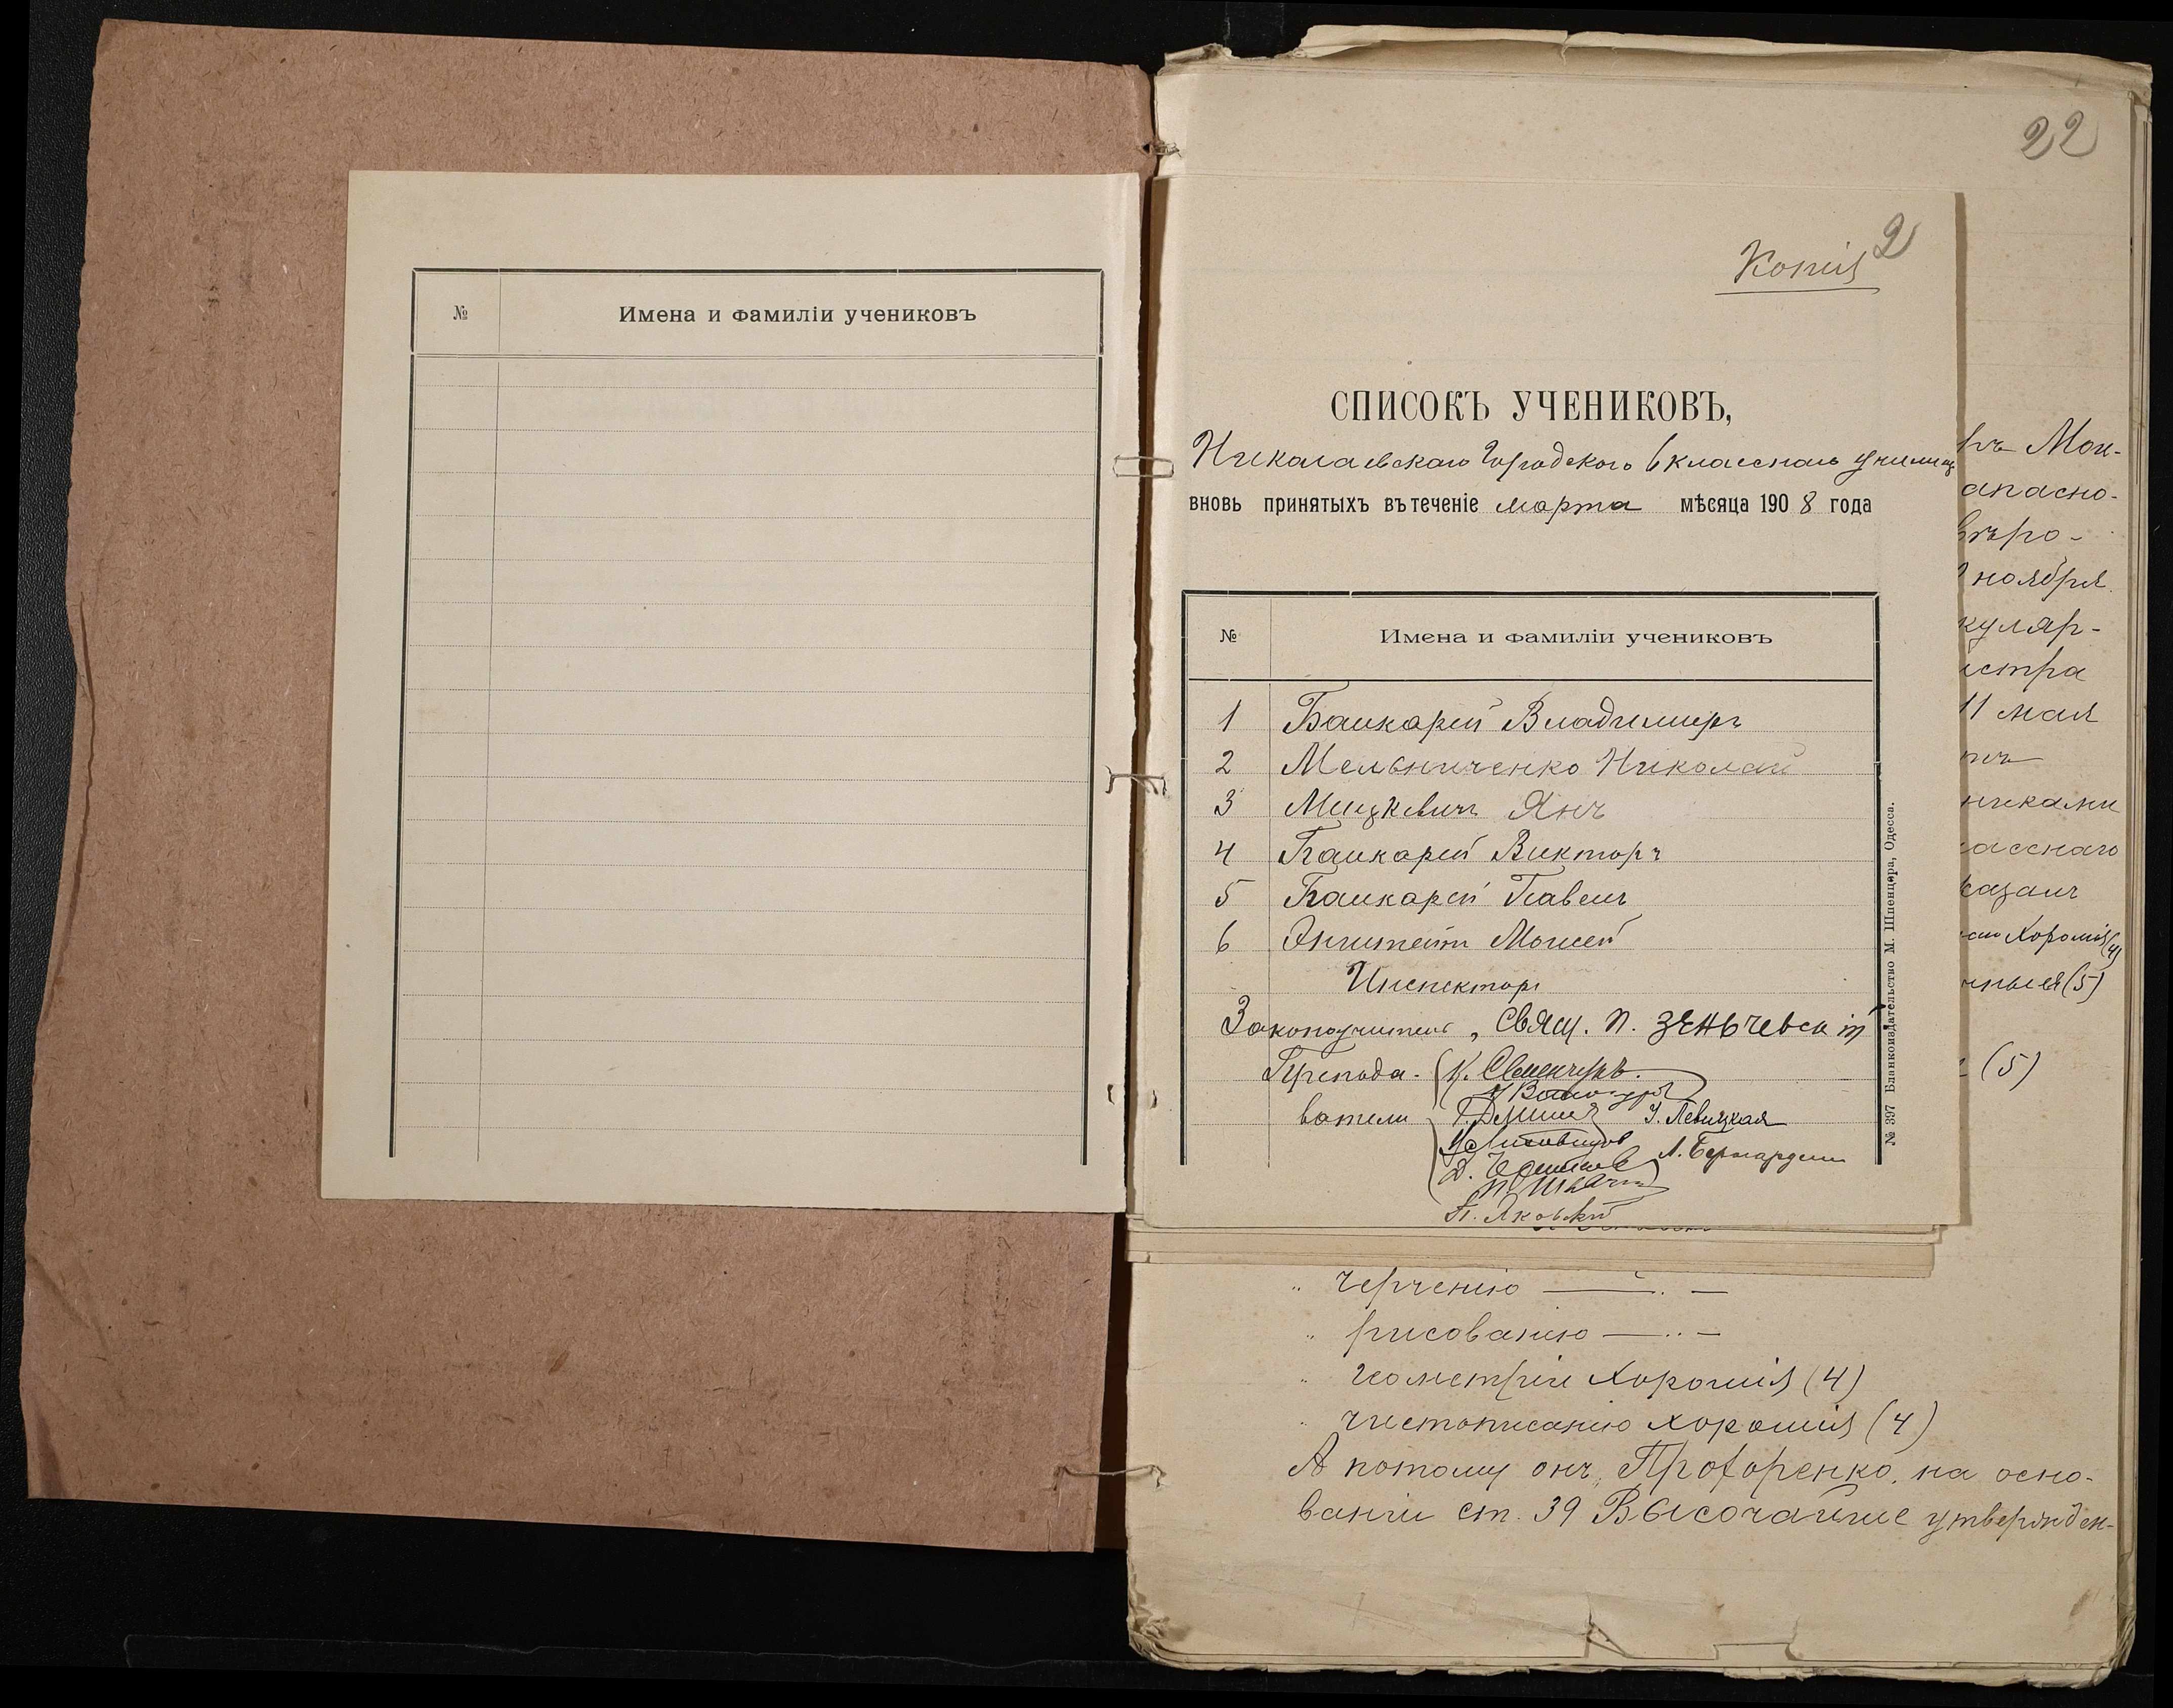 № Имена и фамиліи учениковъ
22
Копія 2
СПИСОКЪ УЧЕНИКОВЪ,
Николаевскаго Городского 6 класснаго училищ
вновь принятыхъ въ теченіе марта мѣсяца 1908 года
№ Имена и фамиліи учениковъ
1 Башкарей Владимиръ
2 Мельниченко Николай
3 Мицкевичъ Янъ
4 Башкарей Викторъ
5 Башкарей Павелъ
6 Моисей
Инспекторъ
Законоучитель, Свящ. П. Зеньчевскій
Препода-
ватели
У. Левицкая
Л. Бернардъ
П. Яковкій
№ 397 Бланкоиздательство М. Шпенцера, Одесса.
ръ Мои-
апасно-
вѣро-
ноября
куляр-
истра
11 мая
никами
асснаго
казалъ
Хорошія (4)
(5)
(5)
" черченію — " —
" рисованію — " —
" геометріи хорошія (4)
" чистописанію хорошія (4)
А потому онъ, Прохоренко, на осно-
ваніи ст. 39 Высочайше утвержден-